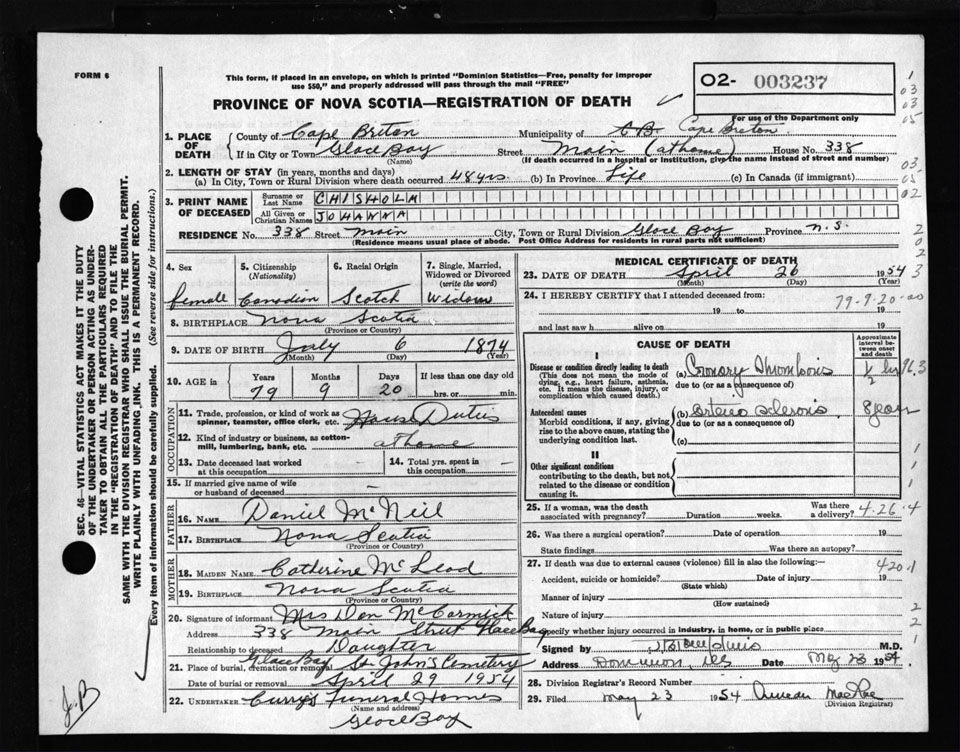 FORM 6
This form, if placed in an envelope, on which is printed "Dominion Statistics—Free, penalty for improper
use $50," and properly addressed will pass through the mail "FREE"
PROVINCE OF NOVA SCOTIA—REGISTRATION OF DEATH
02- 003237
For use of the Department only
1. PLACE OF DEATH
County of Cape Breton Municipality of C B Cape Breton
If in City or Town Glace Bay Street Main (at home) House No. 338
(Name) (If death occurred in a hospital or institution, give the name instead of street and number)
2. LENGTH OF STAY (in years, months and days)
(a) In City, Town or Rural Division where death occurred 48 yrs (b) In Province Life (c) In Canada (if immigrant)
3. PRINT NAME OF DECEASED
Surname or Last Name CHISHOLM
All Given or Christian Names JOHANNA
RESIDENCE No. 338 Street Main City, Town or Rural Division Glace Bay Province N.S.
(Residence means usual place of abode. Post Office Address for residents in rural parts not sufficient)
4. Sex
female
5. Citizenship (Nationality)
Canadian
6. Racial Origin
Scotch
7. Single, Married, Widowed or Divorced (write the word)
Widow
8. BIRTHPLACE Nova Scotia
(Province or Country)
9. DATE OF BIRTH July 6 1874
(Month) (Day) (Year)
10. AGE in Years Months Days If less than one day old
79 9 20 hrs. or min.
OCCUPATION
11. Trade, profession, or kind of work as spinner, teamster, office clerk, etc. House Duties
12. Kind of industry or business, as cotton-mill, lumbering, bank, etc. at home
13. Date deceased last worked at this occupation
14. Total yrs. spent in this occupation
15. If married give name of wife or husband of deceased
FATHER
16. NAME Daniel McNeil
17. BIRTHPLACE Nova Scotia
(Province or Country)
MOTHER
18. MAIDEN NAME Catherine McLeod
19. BIRTHPLACE Nova Scotia
(Province or Country)
20. Signature of informant Mrs Dan McCormick
Address 338 Main Street Glace Bay
Relationship to deceased Daughter
21. Place of burial, cremation or removal Glace Bay St. John's Cemetery
Date of burial or removal April 29 1954
22. UNDERTAKER Curry's Funeral Homes
(Name and address)
Glace Bay
MEDICAL CERTIFICATE OF DEATH
23. DATE OF DEATH April 26 1954
(Month) (Day) (Year)
24. I HEREBY CERTIFY that I attended deceased from:
79-9-20-00
19 to 19
and last saw h alive on 19
CAUSE OF DEATH
Approximate interval between onset and death
I
Disease or condition directly leading to death
(This does not mean the mode of dying, e.g., heart failure, asthenia, etc. It means the disease, injury, or complication which caused death.)
(a) Coronary Thrombosis 1/2 hr
due to (or as a consequence of)
Antecedent causes
Morbid conditions, if any, giving rise to the above cause, stating the underlying condition last.
(b) arterio sclerosis 8 years
due to (or as a consequence of)
(c)
II
Other significant conditions
contributing to the death, but not related to the disease or condition causing it.
25. If a woman, was the death associated with pregnancy? Duration weeks. Was there a delivery?
4-26-4
26. Was there a surgical operation? Date of operation 19
State findings Was there an autopsy?
27. If death was due to external causes (violence) fill in also the following:—
420.1
Accident, suicide or homicide? Date of injury 19
(State which)
Manner of injury
(How sustained)
Nature of injury
Specify whether injury occurred in industry, in home, or in public place
Signed by M.D.
Address Dominion, NS Date May 23 1954.
28. Division Registrar's Record Number
29. Filed May 23 1954 MacRae
(Division Registrar)
SEC. 46—VITAL STATISTICS ACT MAKES IT THE DUTY
OF THE UNDERTAKER OR PERSON ACTING AS UNDER-
TAKER TO OBTAIN ALL THE PARTICULARS REQUIRED
IN THE "REGISTRATION OF DEATH" AND TO FILE THE
SAME WITH THE DIVISION REGISTRAR WHO SHALL ISSUE THE BURIAL PERMIT.
WRITE PLAINLY WITH UNFADING INK. THIS IS A PERMANENT RECORD.
Every item of information should be carefully supplied. (See reverse side for instructions.)